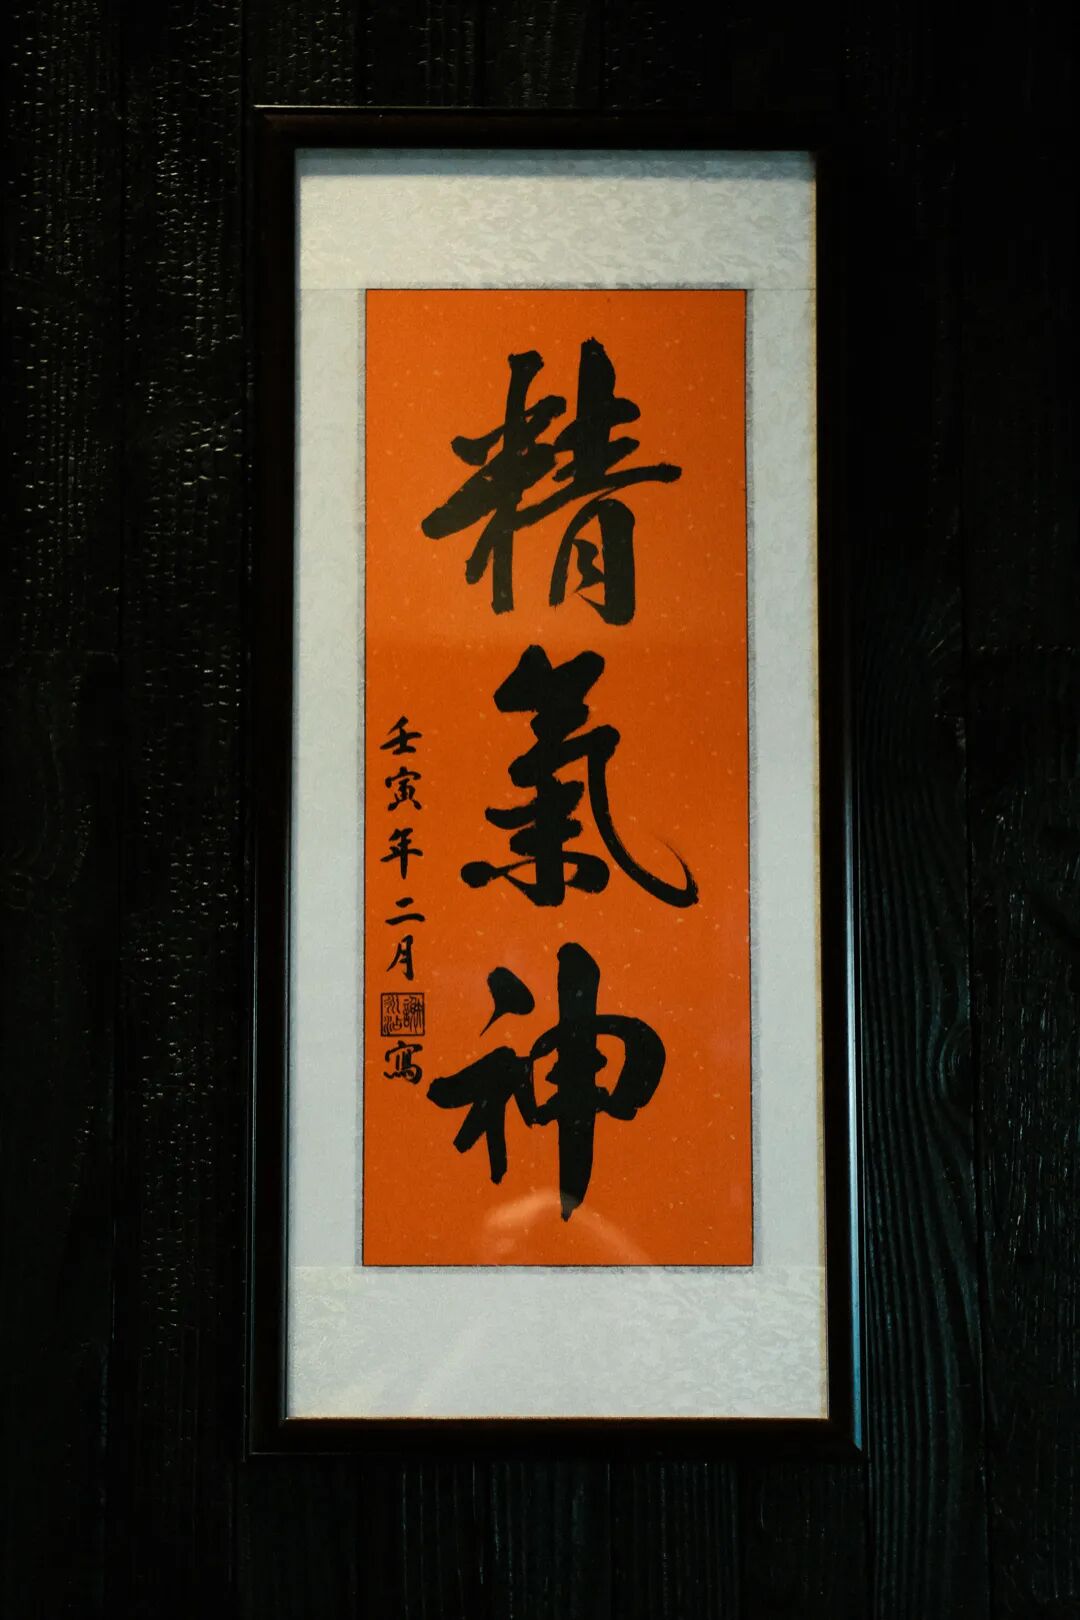 精氣神
壬寅年二月
寫